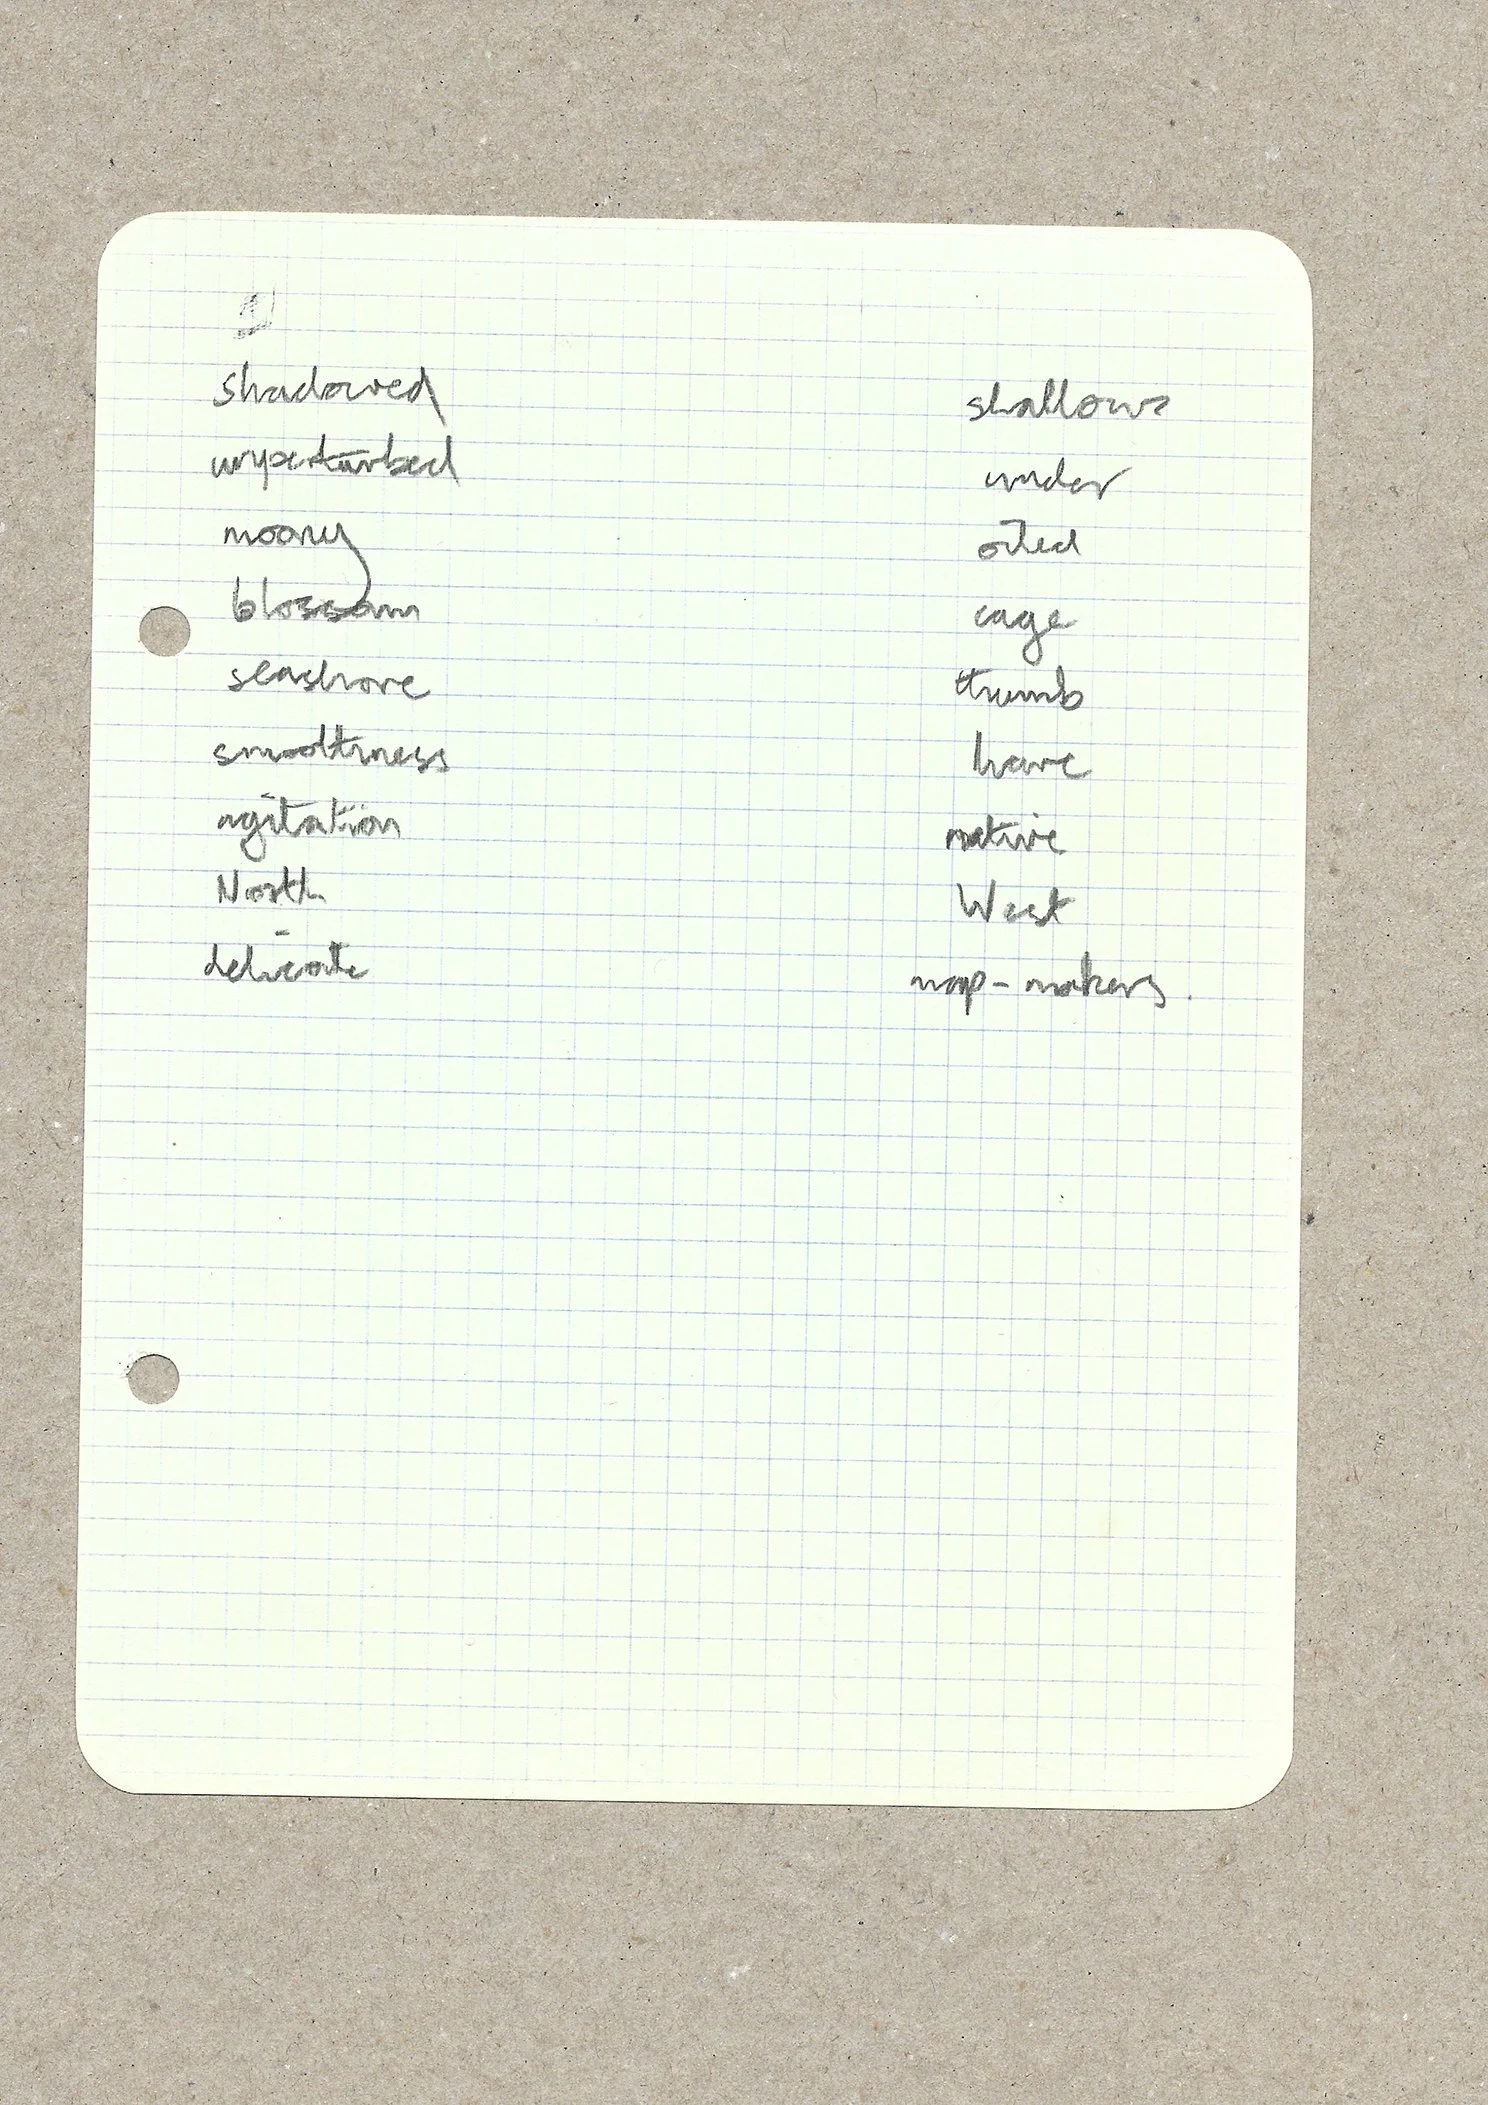 shadowed shallows
unperturbed under
moony oiled
blossom cage
seashore thumb
smoothness hare
agitation native
North West
delicate map-makers.